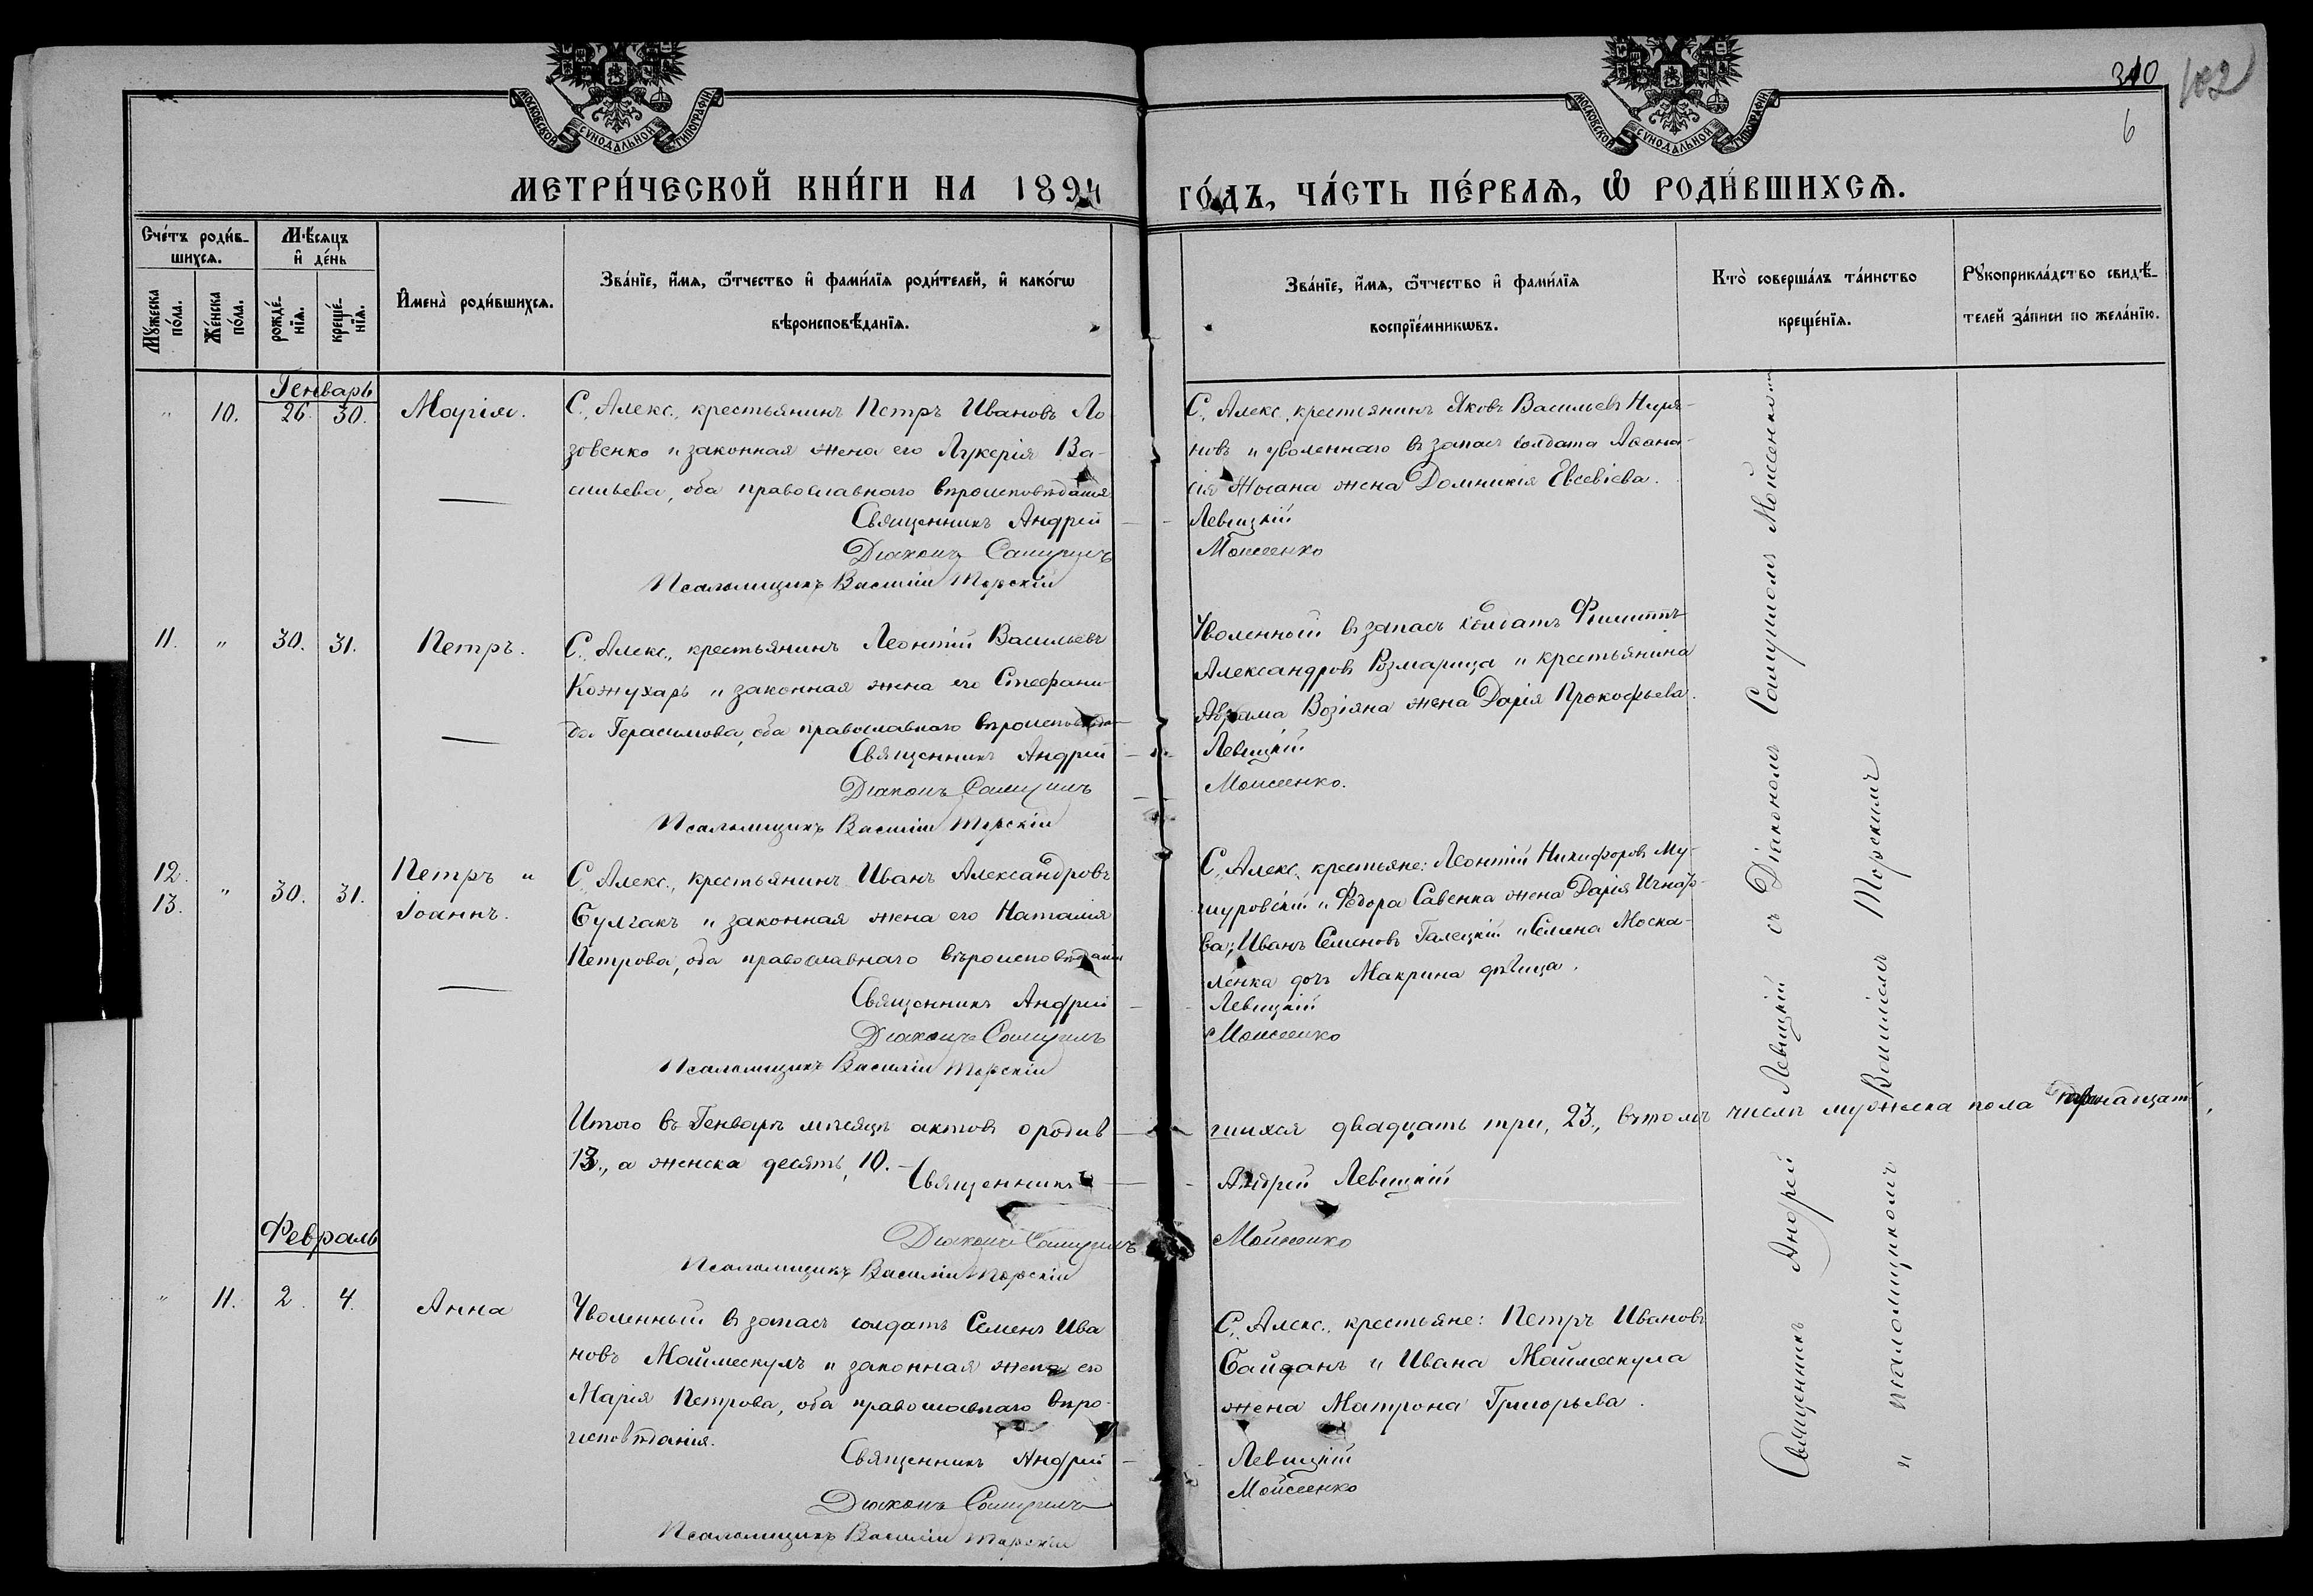 310
102
6
МОСКОВСКОЙ СѴНОДАЛЬНОЙ ТИПОГРАФІИ
МОСКОВСКОЙ СѴНОДАЛЬНОЙ ТИПОГРАФІИ
МЕТРИ́ЧЕСКОЙ КНИ́ГИ НА 1894
ГО́ДЪ, ЧА́СТЬ ПЕ́РВАѦ, Ѽ РОДИ́ВШИХСѦ.
Сче́тъ роди́в-
шихсѧ.
Мꙋ́жеска по́ла.
Же́нска по́ла.
Мѣ́сѧцъ
и҆ де́нь
рожде́-
нїѧ.
креще́-
нїѧ.
И҆мена̀ роди́вшихсѧ.
Зва́нїе, и҆́мѧ, ѻ҆́тчество и҆ фами́лїѧ роди́телей, и҆ како́гѡ
вѣроисповѣ́данїѧ.
Зва́нїе, и҆́мѧ, ѻ҆́тчество и҆ фами́лїѧ
воспрїе́мникѡвъ.
Кто̀ соверша́лъ та́инство
креще́нїѧ.
Рꙋкоприкла́дство свидѣ́-
телей за́писи по жела́нїю.
Генварь
" 10. 26. 30. Марія.
С. Алекс. крестьянинъ Петръ Ивановъ Ло
зовенко и законная жена его Лукерія Ва-
сильева, оба православнаго вѣроисповѣданія
Священникъ Андрей
Діаконъ Самуилъ
Псаломщикъ Василій Торскій
С. Алекс. крестьянинъ Яковъ Васильевъ
новъ и уволеннаго въ запасъ солдата Аѳана-
сія жена Домникія Евсевіева.
Левицкій
Моисеенко
11. " 30. 31. Петръ.
С. Алекс. крестьянинъ Леонтій Васильевъ
Кожухарь и законная жена его Стефани-
да Герасимова, оба православнаго вѣроисповѣда-
Священникъ Андрей
Діаконъ Самуилъ
Псаломщикъ Василій Торскій
Уволенный въ запасъ солдатъ Филиппъ
Александровъ Розмарица и крестьянина
Аврама Возіяна жена Дарія Прокофьева.
Левицкій
Моисеенко.
12. 13. " 30. 31. Петръ и
Іоаннъ.
С. Алекс. крестьянинъ Иванъ Александровъ
Булгакъ и законная жена его Наталія
Петрова, оба православнаго вѣроисповѣданія
Священникъ Андрей
Діаконъ Самуилъ
Псаломщикъ Василій Торскій
С. Алекс. крестьяне: Леонтій Никифоровъ Му-
шуровскій и Ѳедора Савенка жена Дарія
ва; Иванъ Семеновъ Галецкій и Семена Моска-
ленка дочь Макрина дѣвица.
Левицкій
Моисеенко
Итого въ Генварѣ мѣсяцѣ актовъ о родив
шихся двадцать три, 23., въ томъ числѣ мужеска пола тринадцать,
13., а женска десять, 10. – Священникъ
Андрей Левицкій
Діаконъ Самуилъ
Моисеенко
Псаломщикъ Василій Торскій
Февраль
" 11. 2. 4. Анна
Уволенный въ запасъ солдатъ Семенъ Ива
новъ Маймескулъ и законная жена его
Марія Петрова, оба православнаго вѣро-
исповѣданія.
Священникъ Андрей
Діаконъ Самуилъ
Псаломщикъ Василій Торскій
С. Алекс. крестьяне: Петръ Ивановъ
Байданъ и Ивана Маймескула
жена Матрона Григорьева.
Левицкій
Моисеенко
Священникъ Андрей Левицкій съ Діакономъ Самуиломъ Моисеенкомъ
и псаломщикомъ Василіемъ Торскимъ